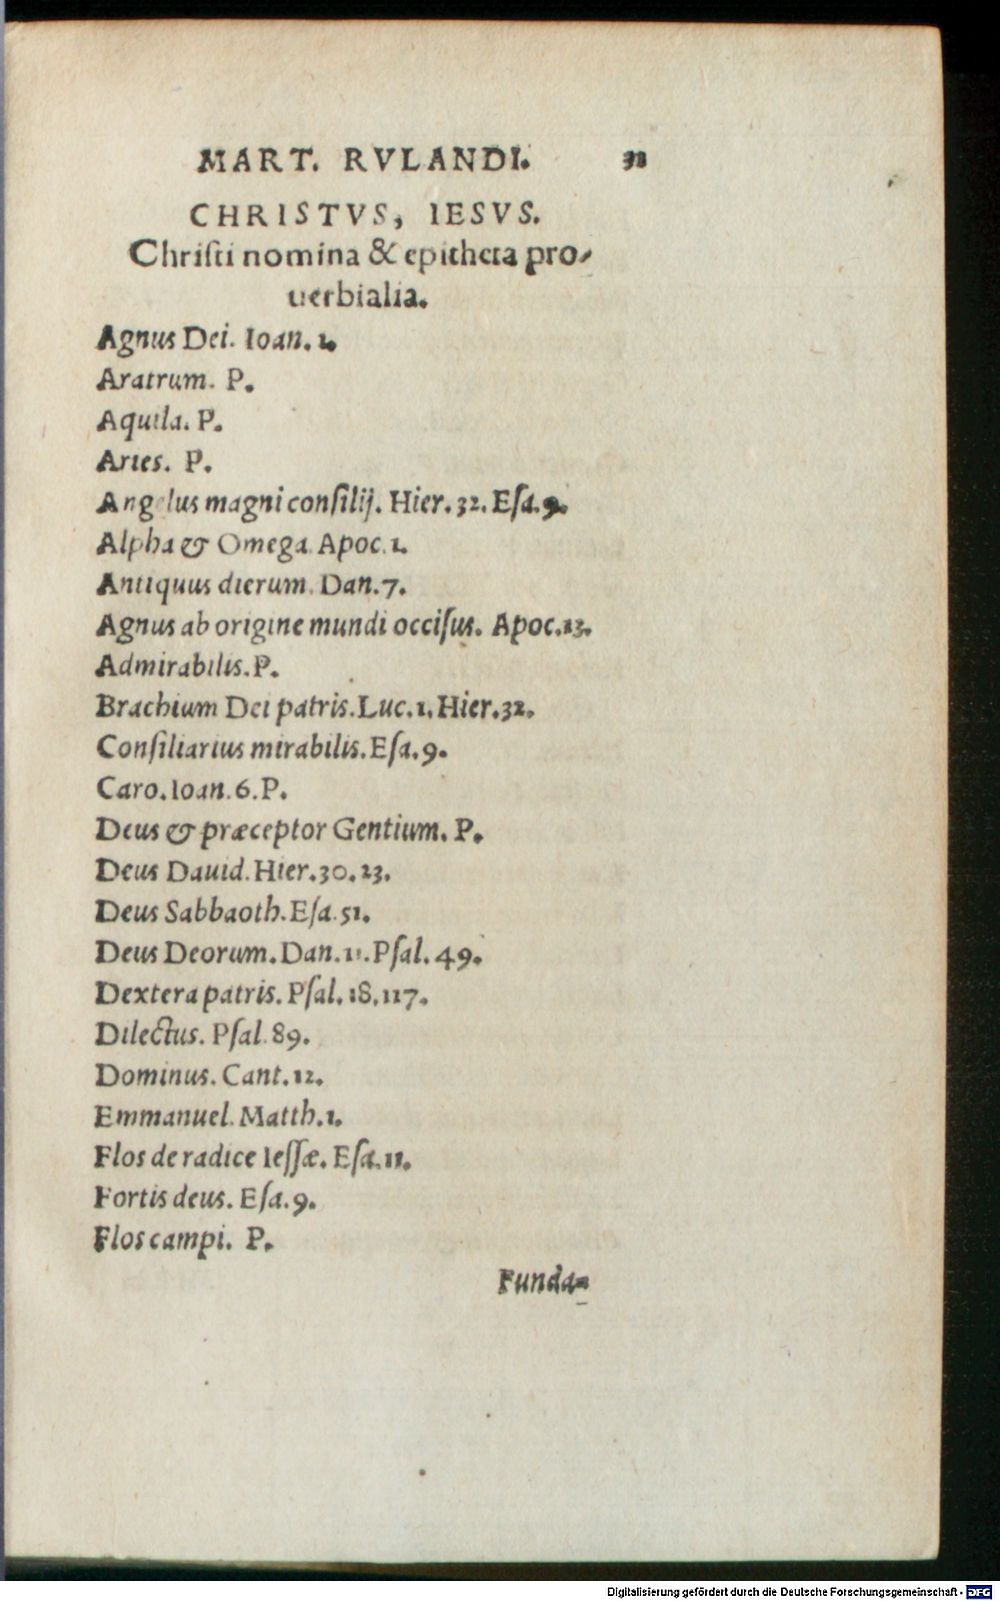 MART. RVLANDI.
CHRISTVS, IESVS.
Chriſti nomina & epitheta pro-
uerbialia.
Agnus Dei. Ioan. 1.
Aratrum. P.
Aquila. P.
Aries. P.
Angelus magni conſilij. Hier. 32. Eſa. 9.
Alpha & Omega. Apoc. 1.
Antiquus dierum. Dan. 7.
Agnus ab origine mundi occiſus. Apoc. 13.
Admirabilis. P.
Brachium Dei patris. Luc. 1. Hier. 32.
Conſiliarius mirabilis. Eſa. 9.
Caro. Ioan. 6. P.
Deus & præceptor Gentium. P.
Deus Dauid. Hier. 30. 23.
Deus Sabbaoth. Eſa. 51.
Deus Deorum. Dan. 11. Pſal. 49.
Dextera patris. Pſal. 18. 117.
Dilectus. Pſal. 89.
Dominus. Cant. 12.
Emmanuel. Matth. 1.
Flos de radice Ieſſæ. Eſa. 11.
Fortis deus. Eſa. 9.
Flos campi. P.
Funda-
Digitalisierung gefördert durch die Deutsche Forschungsgemeinschaft - DFG